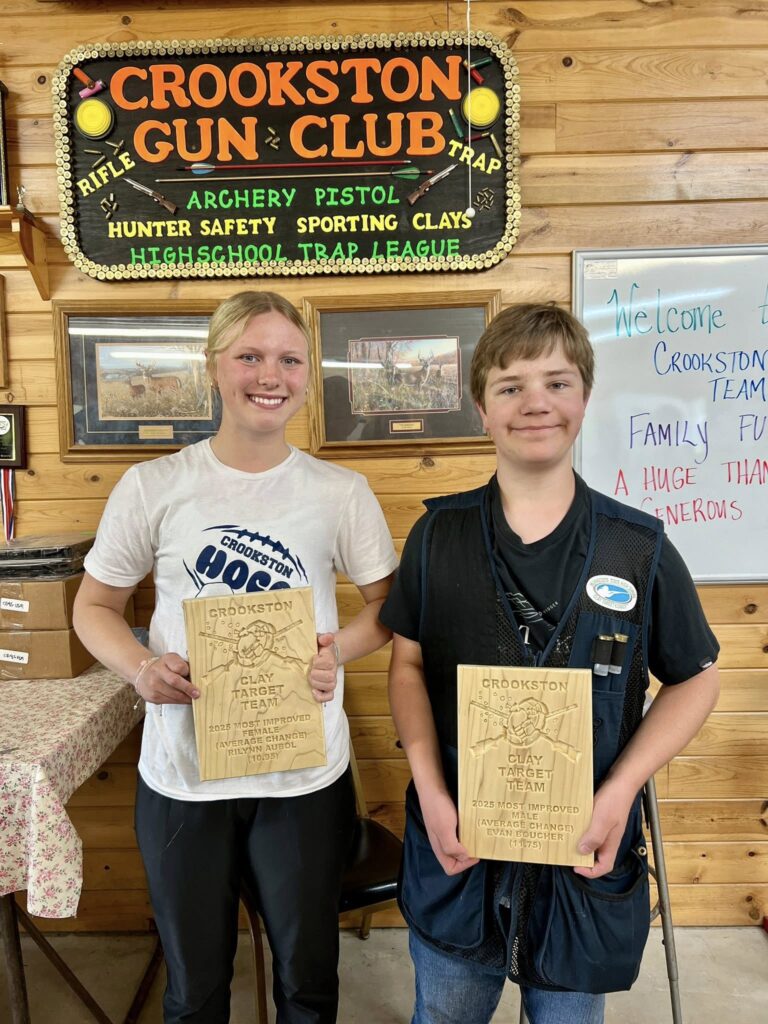 CROOKSTON
GUN CLUB
RIFLE
TRAP
ARCHERY PISTOL
HUNTER SAFETY SPORTING CLAYS
HIGHSCHOOL TRAP LEAGUE
Welcome
CROOKSTON
TEAM
FAMILY FU
A HUGE THAN
GENEROUS
CROOKSTON
HOGS
CROOKSTON
CLAY
TARGET
TEAM
2025 MOST IMPROVED
FEMALE
(AVERAGE CHANGE)
RILYNN AUBOL
(10.35)
CROOKSTON
CLAY
TARGET
TEAM
2025 MOST IMPROVED
MALE
(AVERAGE CHANGE)
EVAN BOUCHER
(11.75)